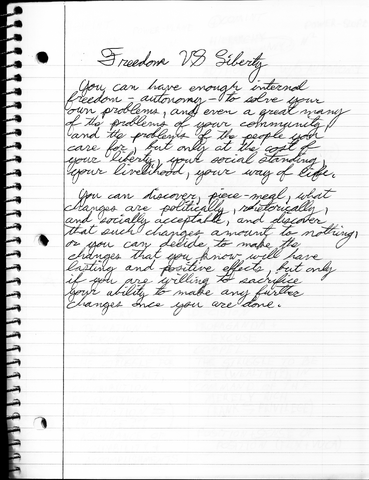 Freedom VS Liberty
You can have enough internal
freedom - autonomy - to solve your
own problems, and even a great many
of the problems of your community
and the problems of the people you
care for, but only at the cost of
your liberty, your social standing,
your livelihood, your way of life.
You can discover, piece-meal, what
changes are politically, rhetorically,
and socially acceptable, and discover
that such changes amount to nothing,
or you can decide to make the
changes that you know will have
lasting and positive effects, but only
if you are willing to sacrifice
your ability to make any further
changes once you are done.